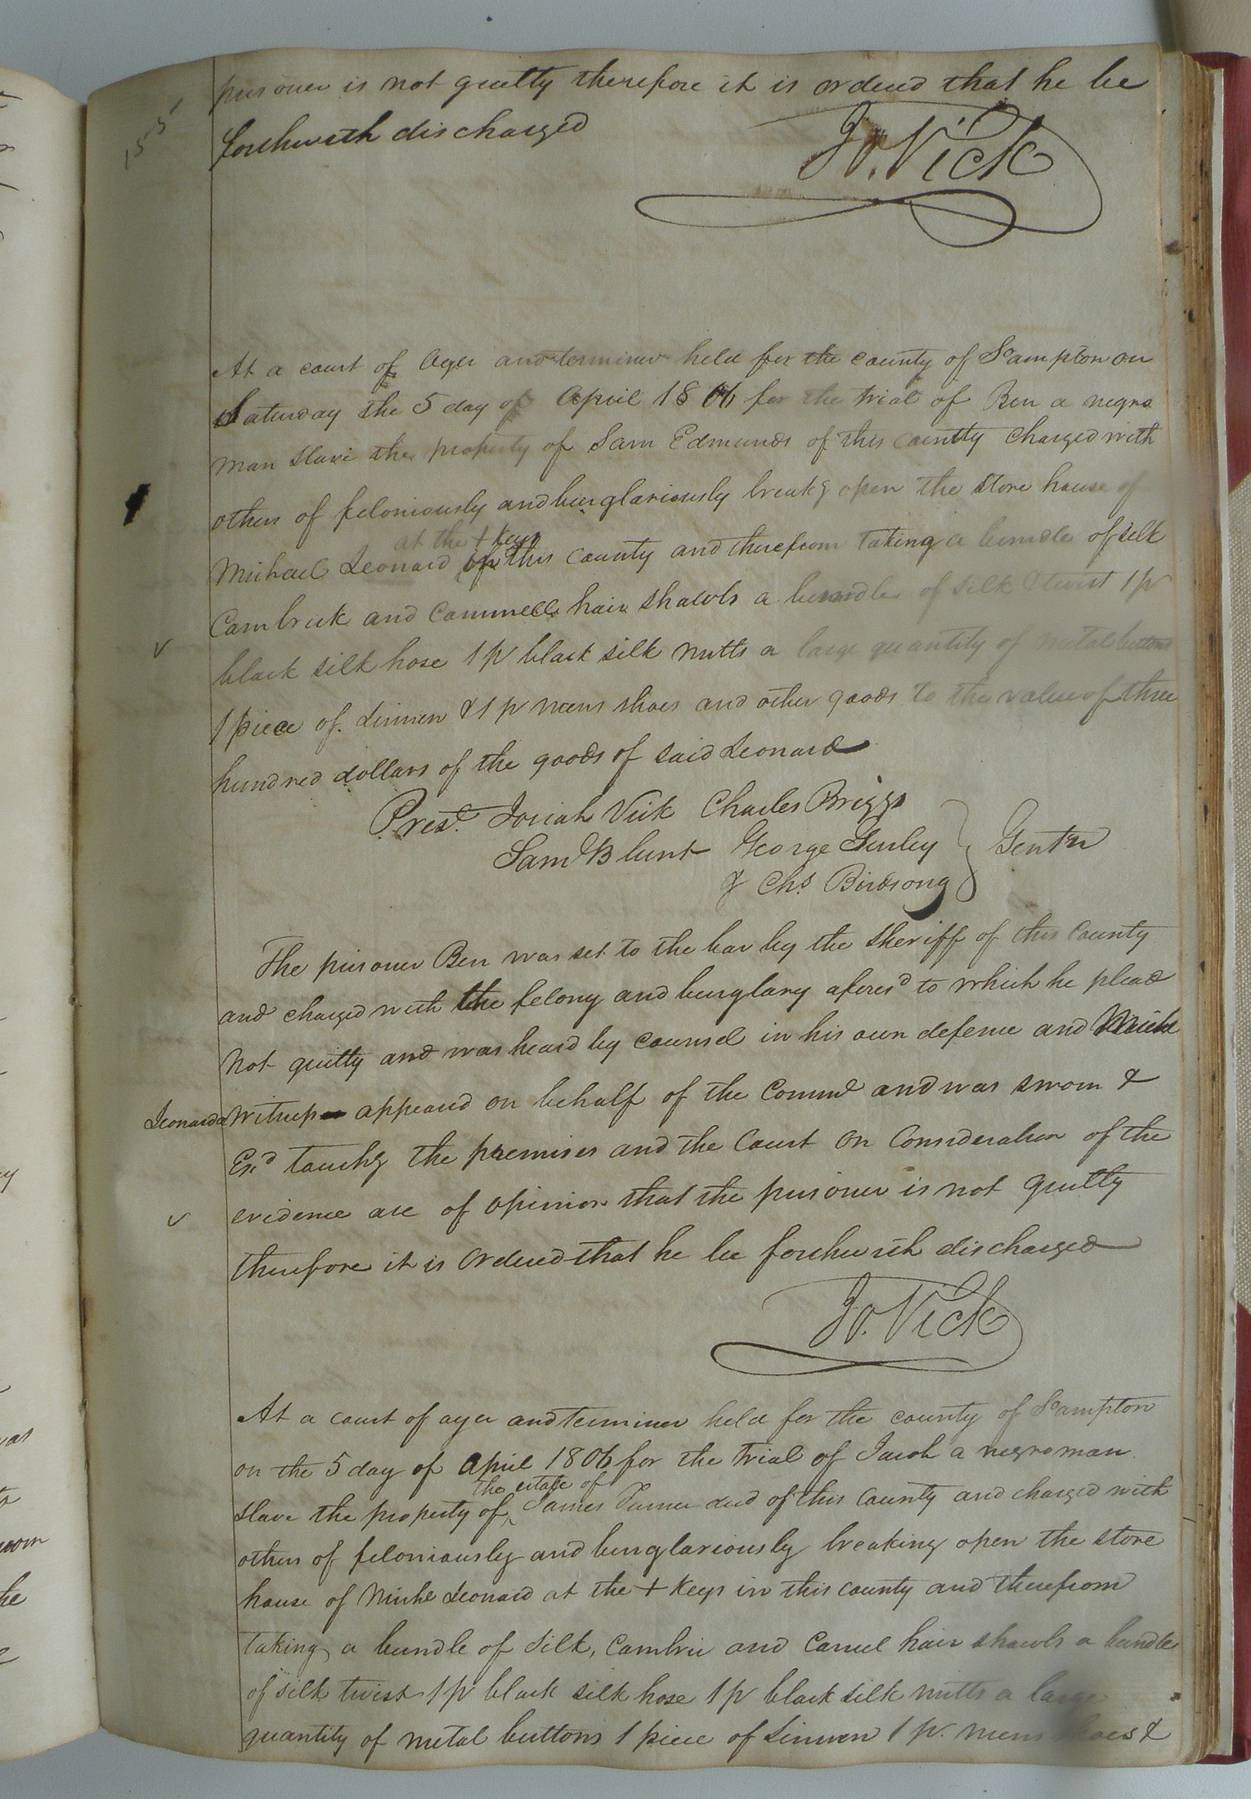 155
prisoner is not guilty therefore it is ordered that he be
forthwith discharged
Jo. Vick
At a court of Oyer and terminer held for the county of S'ampton on
Saturday the 5 day of April 1806 for the trial of Ben a negro
man slave the property of Sam Edmunds of this county charged with
others of feloniously and burglariously breakg open the store house of
at the + keys
Michael Leonard in this county and therefrom taking a bundle of silk
Cambrick and Cammell hair shawls a bundle of silk twist 1 pr
black silk hose 1 pr black silk mitts a large quantity of metal buttons
1 piece of Linnen & 1 pr mens shoes and other goods to the value of three
hundred dollars of the goods of said Leonard
Prest. Josiah Vick Charles Briggs
Saml Blunt George Gurley } Gentn
& Chs Birdsong
The prisoner Ben was set to the bar by the Sheriff of this County
and charged with the felony and burglary aforesd to which he plead
not guilty and was heard by counsel in his own defence and Michl
Leonard a witness appeared on behalf of the Commd and was sworn &
Exd touchg the premises and the Court on Consideration of the
evidence are of opinion that the prisoner is not guilty
therefore it is ordered that he be forthwith discharged
Jo. Vick
At a court of oyer and terminer held for the county of S'ampton
on the 5 day of April 1806 for the trial of Jacob a negro man
the estate of
slave the property of ^ James Turner decd of this County and charged with
others of feloniously and burglariously breaking open the store
house of Michl Leonard at the + keys in this county and therefrom
taking a bundle of silk, Cambric and Camel hair shawls a bundle
of silk twist 1 pr black silk hose 1 pr black silk mitts a large
quantity of metal buttons 1 piece of Linnen 1 pr. mens shoes &